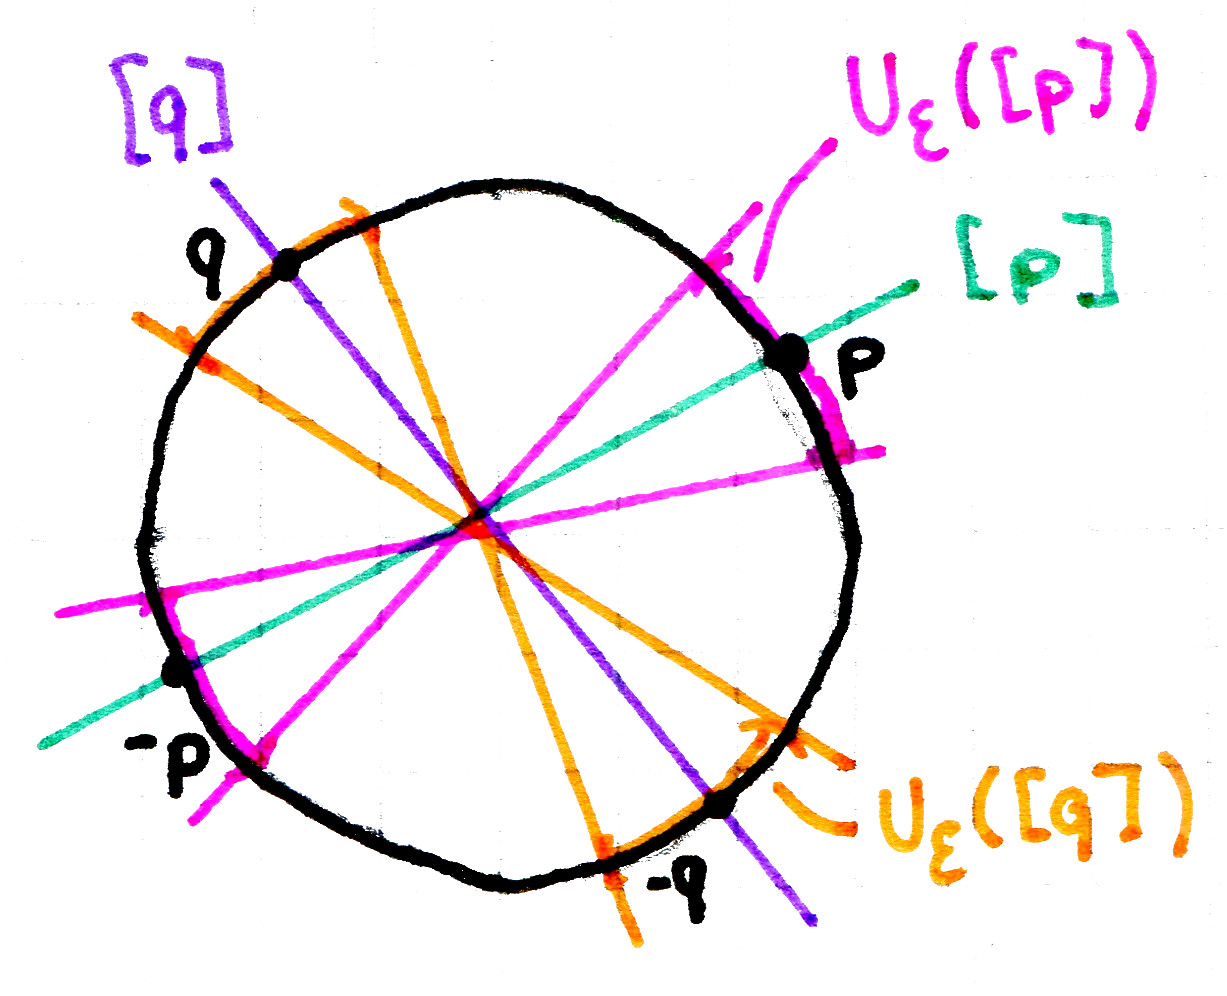 [q]
U_ε([p])
q
[p]
p
-p
U_ε([q])
-q